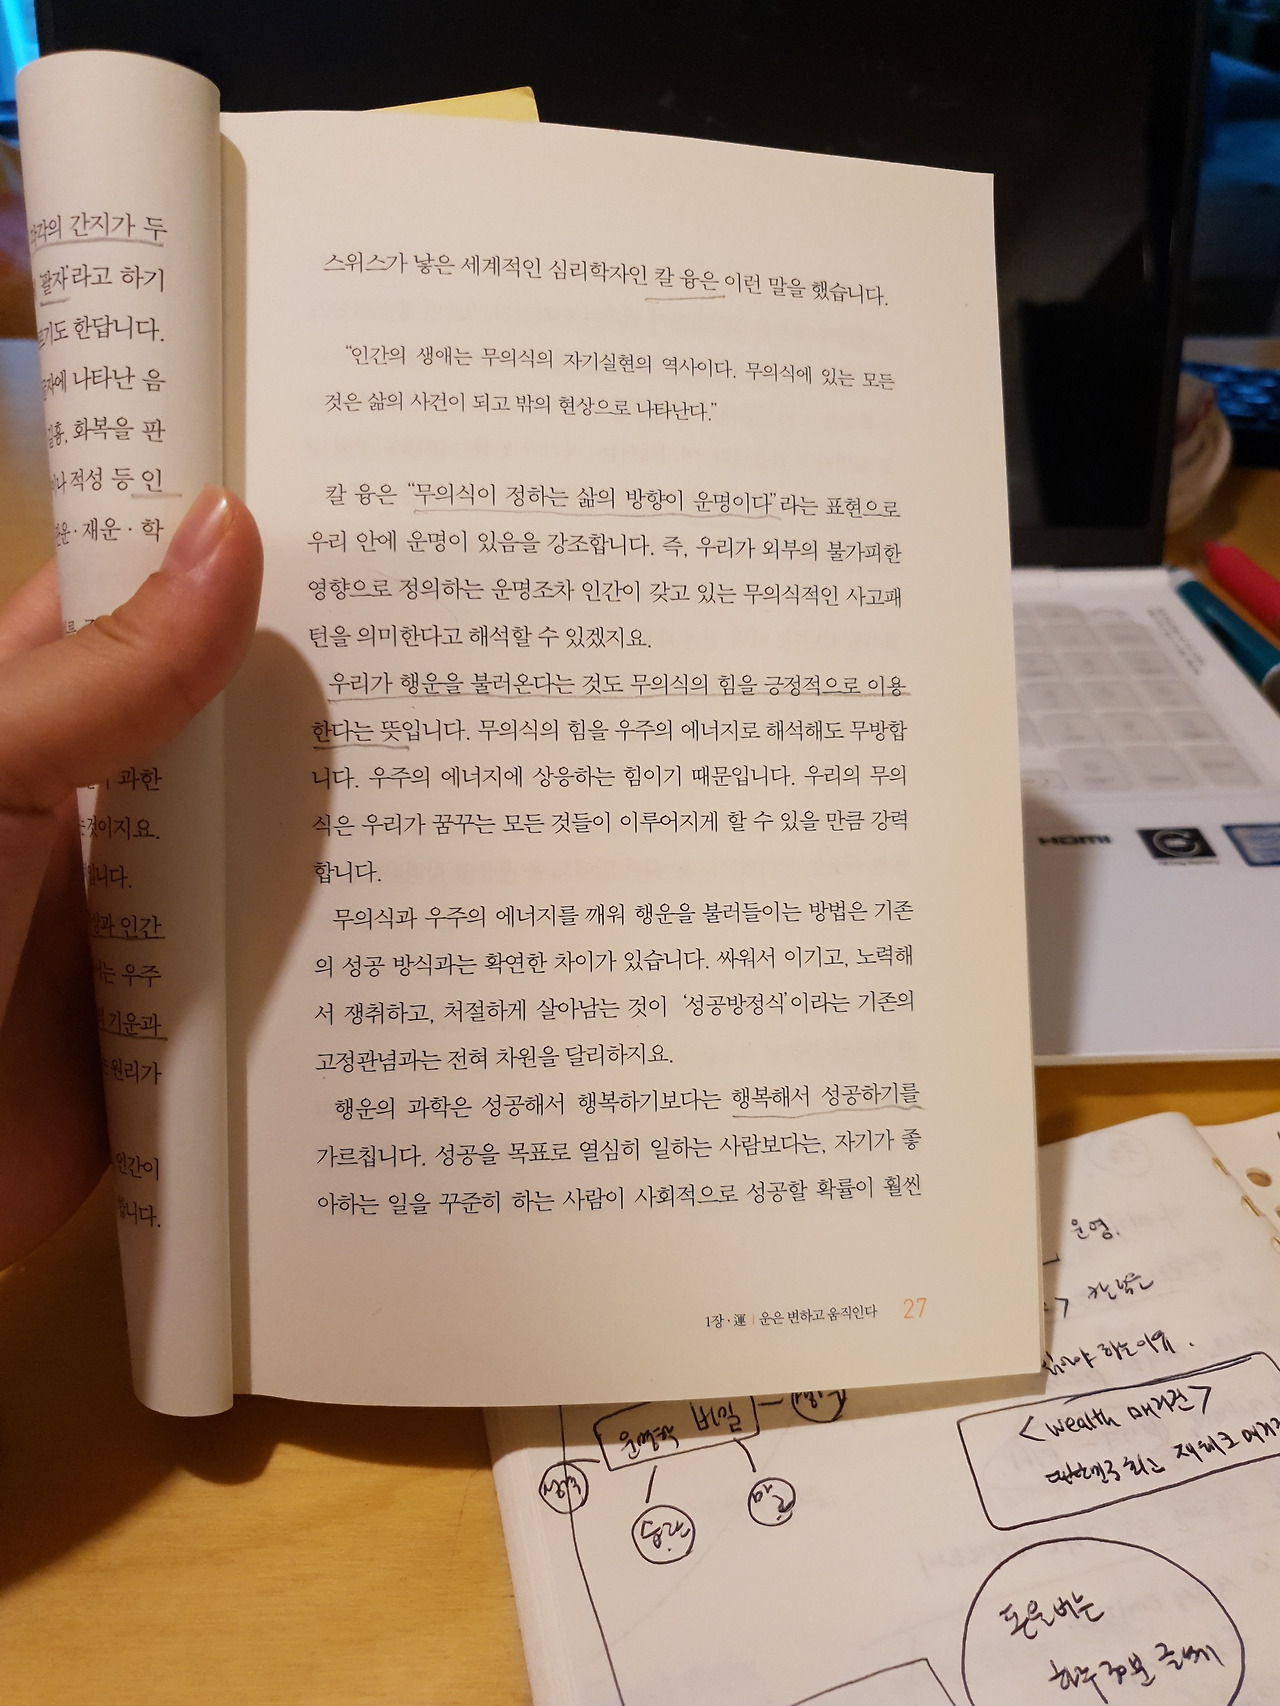 각각의 간지가 두
'팔자'라고 하기
기도 한답니다.
자에 나타난 음
길흉, 화복을 판
나 적성 등 인
재운 · 학
과한
것이지요.
니다.
과 인간
는 우주
기운과
원리가
인간이
합니다.
스위스가 낳은 세계적인 심리학자인 칼 융은 이런 말을 했습니다.
"인간의 생애는 무의식의 자기실현의 역사이다. 무의식에 있는 모든
것은 삶의 사건이 되고 밖의 현상으로 나타난다."
칼 융은 "무의식이 정하는 삶의 방향이 운명이다"라는 표현으로
우리 안에 운명이 있음을 강조합니다. 즉, 우리가 외부의 불가피한
영향으로 정의하는 운명조차 인간이 갖고 있는 무의식적인 사고패
턴을 의미한다고 해석할 수 있겠지요.
우리가 행운을 불러온다는 것도 무의식의 힘을 긍정적으로 이용
한다는 뜻입니다. 무의식의 힘을 우주의 에너지로 해석해도 무방합
니다. 우주의 에너지에 상응하는 힘이기 때문입니다. 우리의 무의
식은 우리가 꿈꾸는 모든 것들이 이루어지게 할 수 있을 만큼 강력
합니다.
무의식과 우주의 에너지를 깨워 행운을 불러들이는 방법은 기존
의 성공 방식과는 확연한 차이가 있습니다. 싸워서 이기고, 노력해
서 쟁취하고, 처절하게 살아남는 것이 '성공방정식'이라는 기존의
고정관념과는 전혀 차원을 달리하지요.
행운의 과학은 성공해서 행복하기보다는 행복해서 성공하기를
가르칩니다. 성공을 목표로 열심히 일하는 사람보다는, 자기가 좋
아하는 일을 꾸준히 하는 사람이 사회적으로 성공할 확률이 훨씬
1장 · 運 | 운은 변하고 움직인다 27
HDMI
운명.
하는이유.
<Wealth 매거진>
대한민국 최고 재테크 매거진
비밀
습관
말
돈을버는